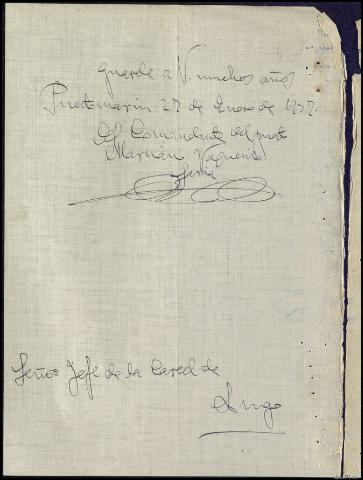 guarde a V. muchos años
Puertomarin 27 de Enero de 1937.
El Comandante del puesto
Marián Vaquero
Señor Jefe de la Carcel de
Lugo